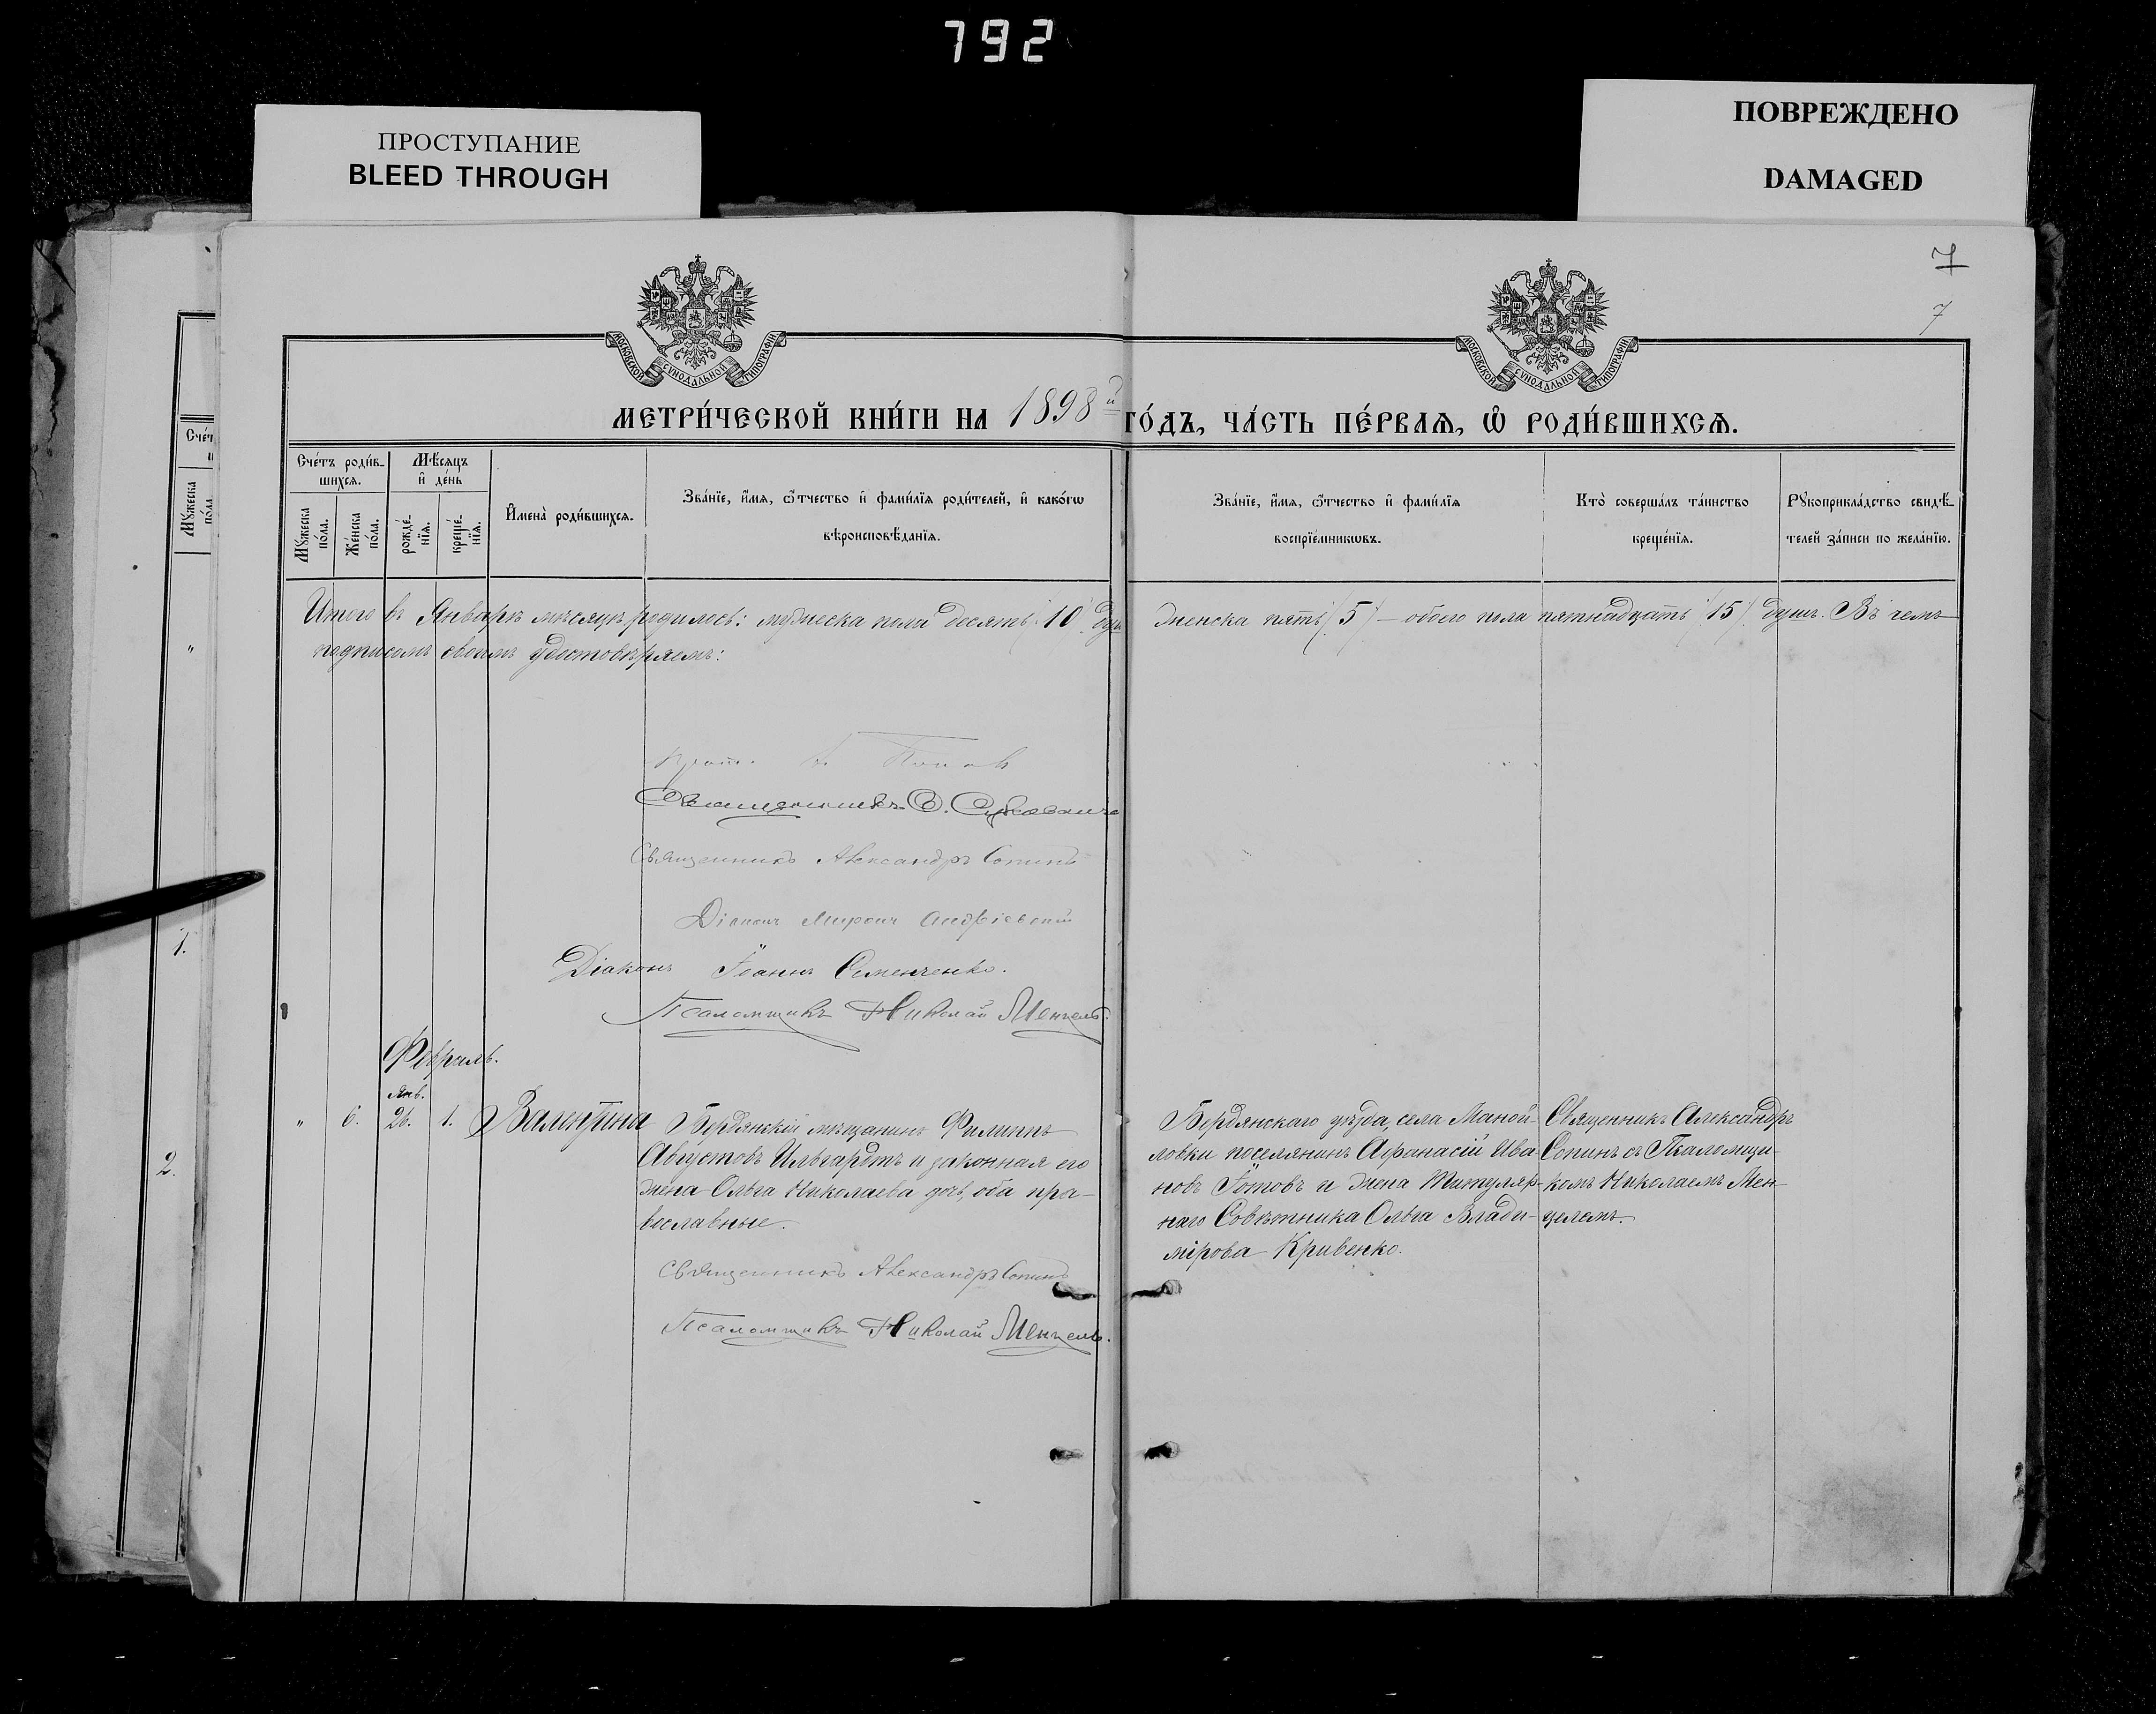 792
ПРОСТУПАНИЕ
BLEED THROUGH
ПОВРЕЖДЕНО
DAMAGED
7
7
МОСКОВСКОЙ СѴНОДАЛЬНОЙ ТИПОГРАФІИ
МОСКОВСКОЙ СѴНОДАЛЬНОЙ ТИПОГРАФІИ
МЕТРИ́ЧЕСКОЙ КНИ́ГИ НА 1898й ГО́ДЪ, ЧА́СТЬ ПЕ́РВАѦ, Ѡ҆ РОДИ́ВШИХСѦ.
Сче́тъ роди́в-
шихсѧ.
Мѣ́сяцъ
и҆ де́нь
Мꙋ́жеска
по́ла.
Же́нска
по́ла.
рожде́-
нїѧ.
креще́-
нїѧ.
И҆мена̀ роди́вшихсѧ.
Зва́нїе, и҆́мѧ, ѻ҆́тчество и҆ фами́лїѧ роди́телей, и҆ како́гѡ
вѣроисповѣ́данїѧ.
Зва́нїе, и҆́мѧ, ѻ҆́тчество и҆ фами́лїѧ
воспрїе́мникѡвъ.
Кто̀ соверша́лъ та́инство
креще́нїѧ.
Рꙋкоприкла́дство свидѣ́-
телей за́писи по жела́нїю.
Мꙋ́жеска
по́ла
Итого въ Январѣ мѣсяцѣ родилось: мужеска пола десять (10) душ женска пять (5) — обоего пола пятнадцать (15) душъ. Въ чемъ
подписомъ своимъ удостовѣряемъ:
Прот. Попов
Священникъ
Священникъ Александръ Сопинъ
Діаконъ Миронъ Андріевскій
Діаконъ Іоаннъ Семенченко.
Псаломщикъ Николай Менцель.
1.
2.
Февраль.
Янв.
" 6. 26. 1. Валентина
Бердянскій мѣщанинъ Филиппъ
Августовъ Ильгардтъ и законная его
жена Ольга Николаева доч, оба пра-
вославные.
Священникъ Александръ Сопинъ
Псаломщикъ Николай Менцель.
Бердянскаго уѣзда, села Маной-
ловки поселянинъ Афанасій Ива-
новъ Готовъ и жена Титуляр-
наго Совѣтника Ольга Влади-
мірова Кривенко.
Священникъ Александръ
Сопинъ съ Псаломщи-
комъ Николаемъ Мен-
целемъ.